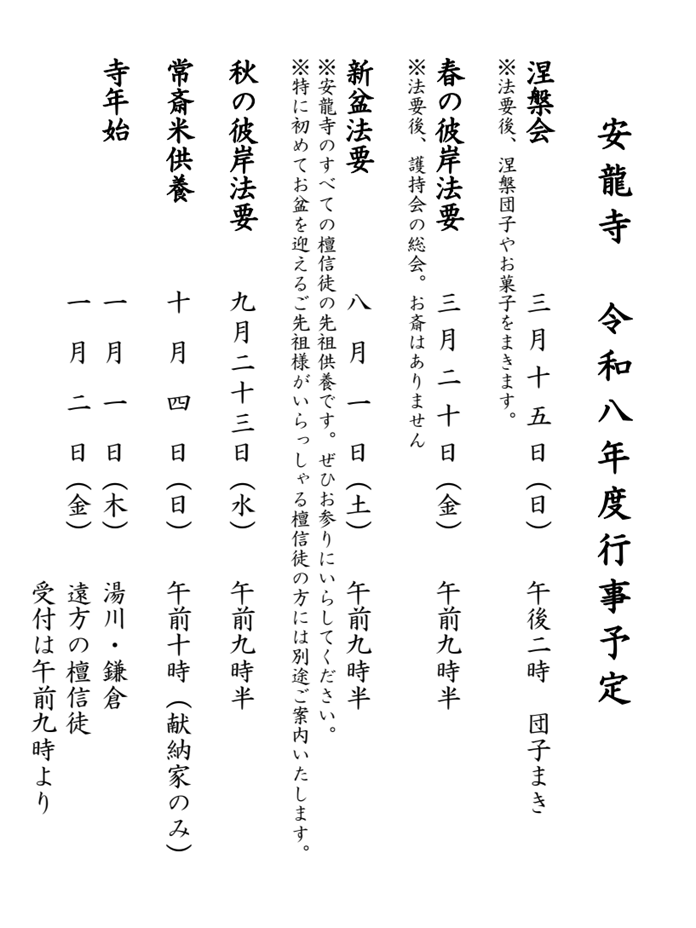 安龍寺　令和八年度行事予定
涅槃会　三月十五日（日）　午後二時　団子まき
※法要後、涅槃団子やお菓子をまきます。
春の彼岸法要　三月二十日（金）　午前九時半
※法要後、護持会の総会。お斎はありません
新盆法要　八月一日（土）　午前九時半
※安龍寺のすべての檀信徒の先祖供養です。ぜひお参りにいらしてください。
※特に初めてお盆を迎えるご先祖様がいらっしゃる檀信徒の方には別途ご案内いたします。
秋の彼岸法要　九月二十三日（水）　午前九時半
常斎米供養　十月四日（日）　午前十時（献納家のみ）
寺年始　一月一日（木）　湯川・鎌倉
一月二日（金）　遠方の檀信徒
受付は午前九時より